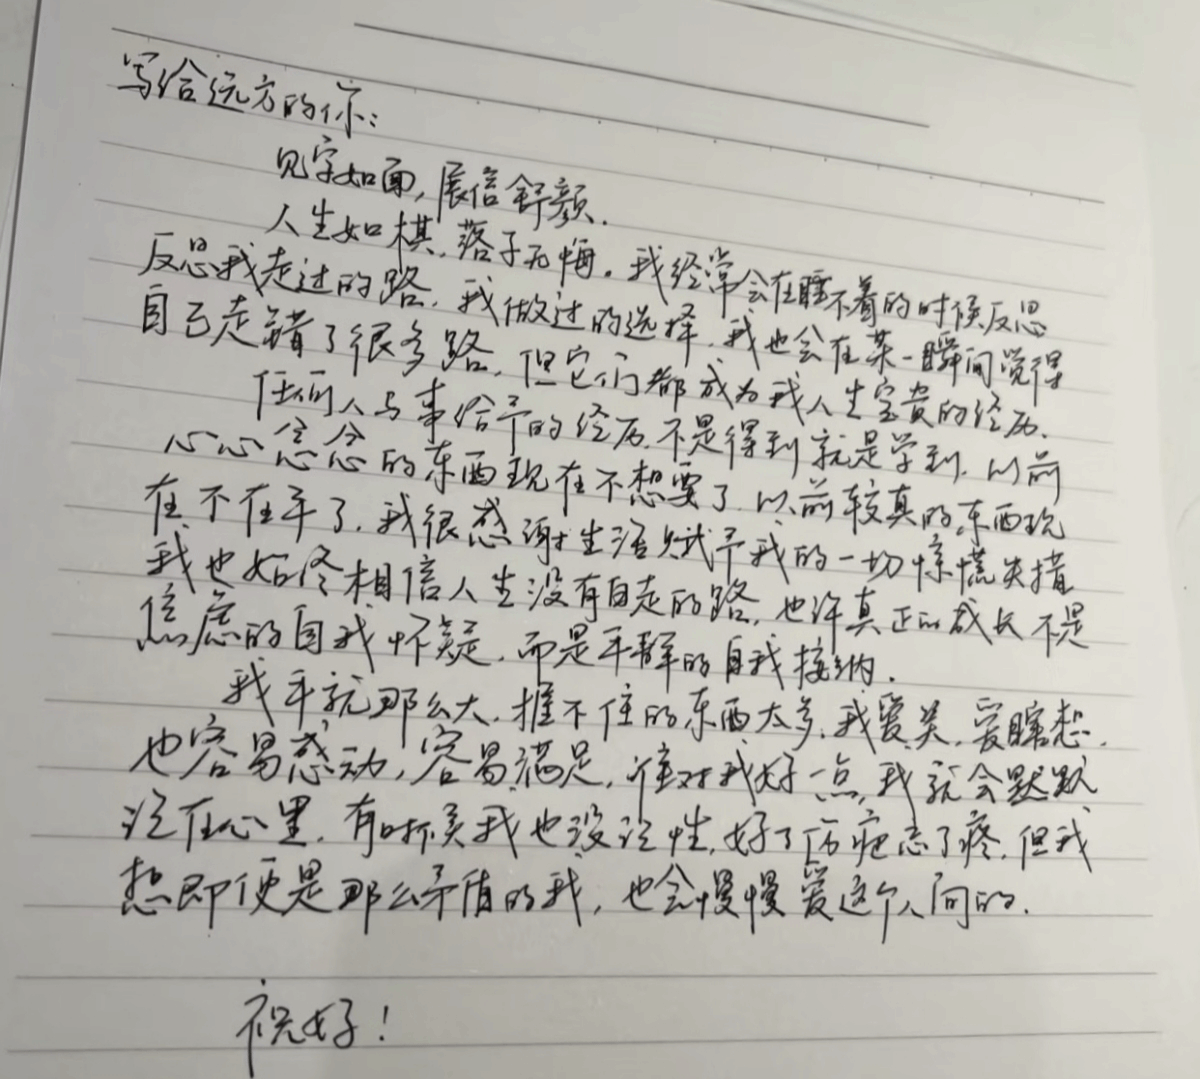 写给远方的你：
见字如面，展信舒颜.
人生如棋，落子无悔。我经常会在睡不着的时候反思
反思我走过的路，我做过的选择，我也会在某一瞬间觉得
自己走错了很多路，但它们都成为我人生宝贵的经历，
任何人与事给予的经历，不是得到就是学到，以前
心心念念的东西现在不想要了，以前较真的东西现
在不在乎了，我很感谢生活赋予我的一切惊慌失措
我也始终相信人生没有白走的路，也许真正的成长不是
焦虑的自我怀疑，而是平静的自我接纳.
我手就那么大，握不住的东西太多，我爱笑，爱瞎想，
也容易感动，容易满足，谁对我好一点，我就会默默
记在心里，有时候我也没记性，好了伤疤忘了疼，但我
想即便是那么矛盾的我，也会慢慢爱这个人间的.
祝好！